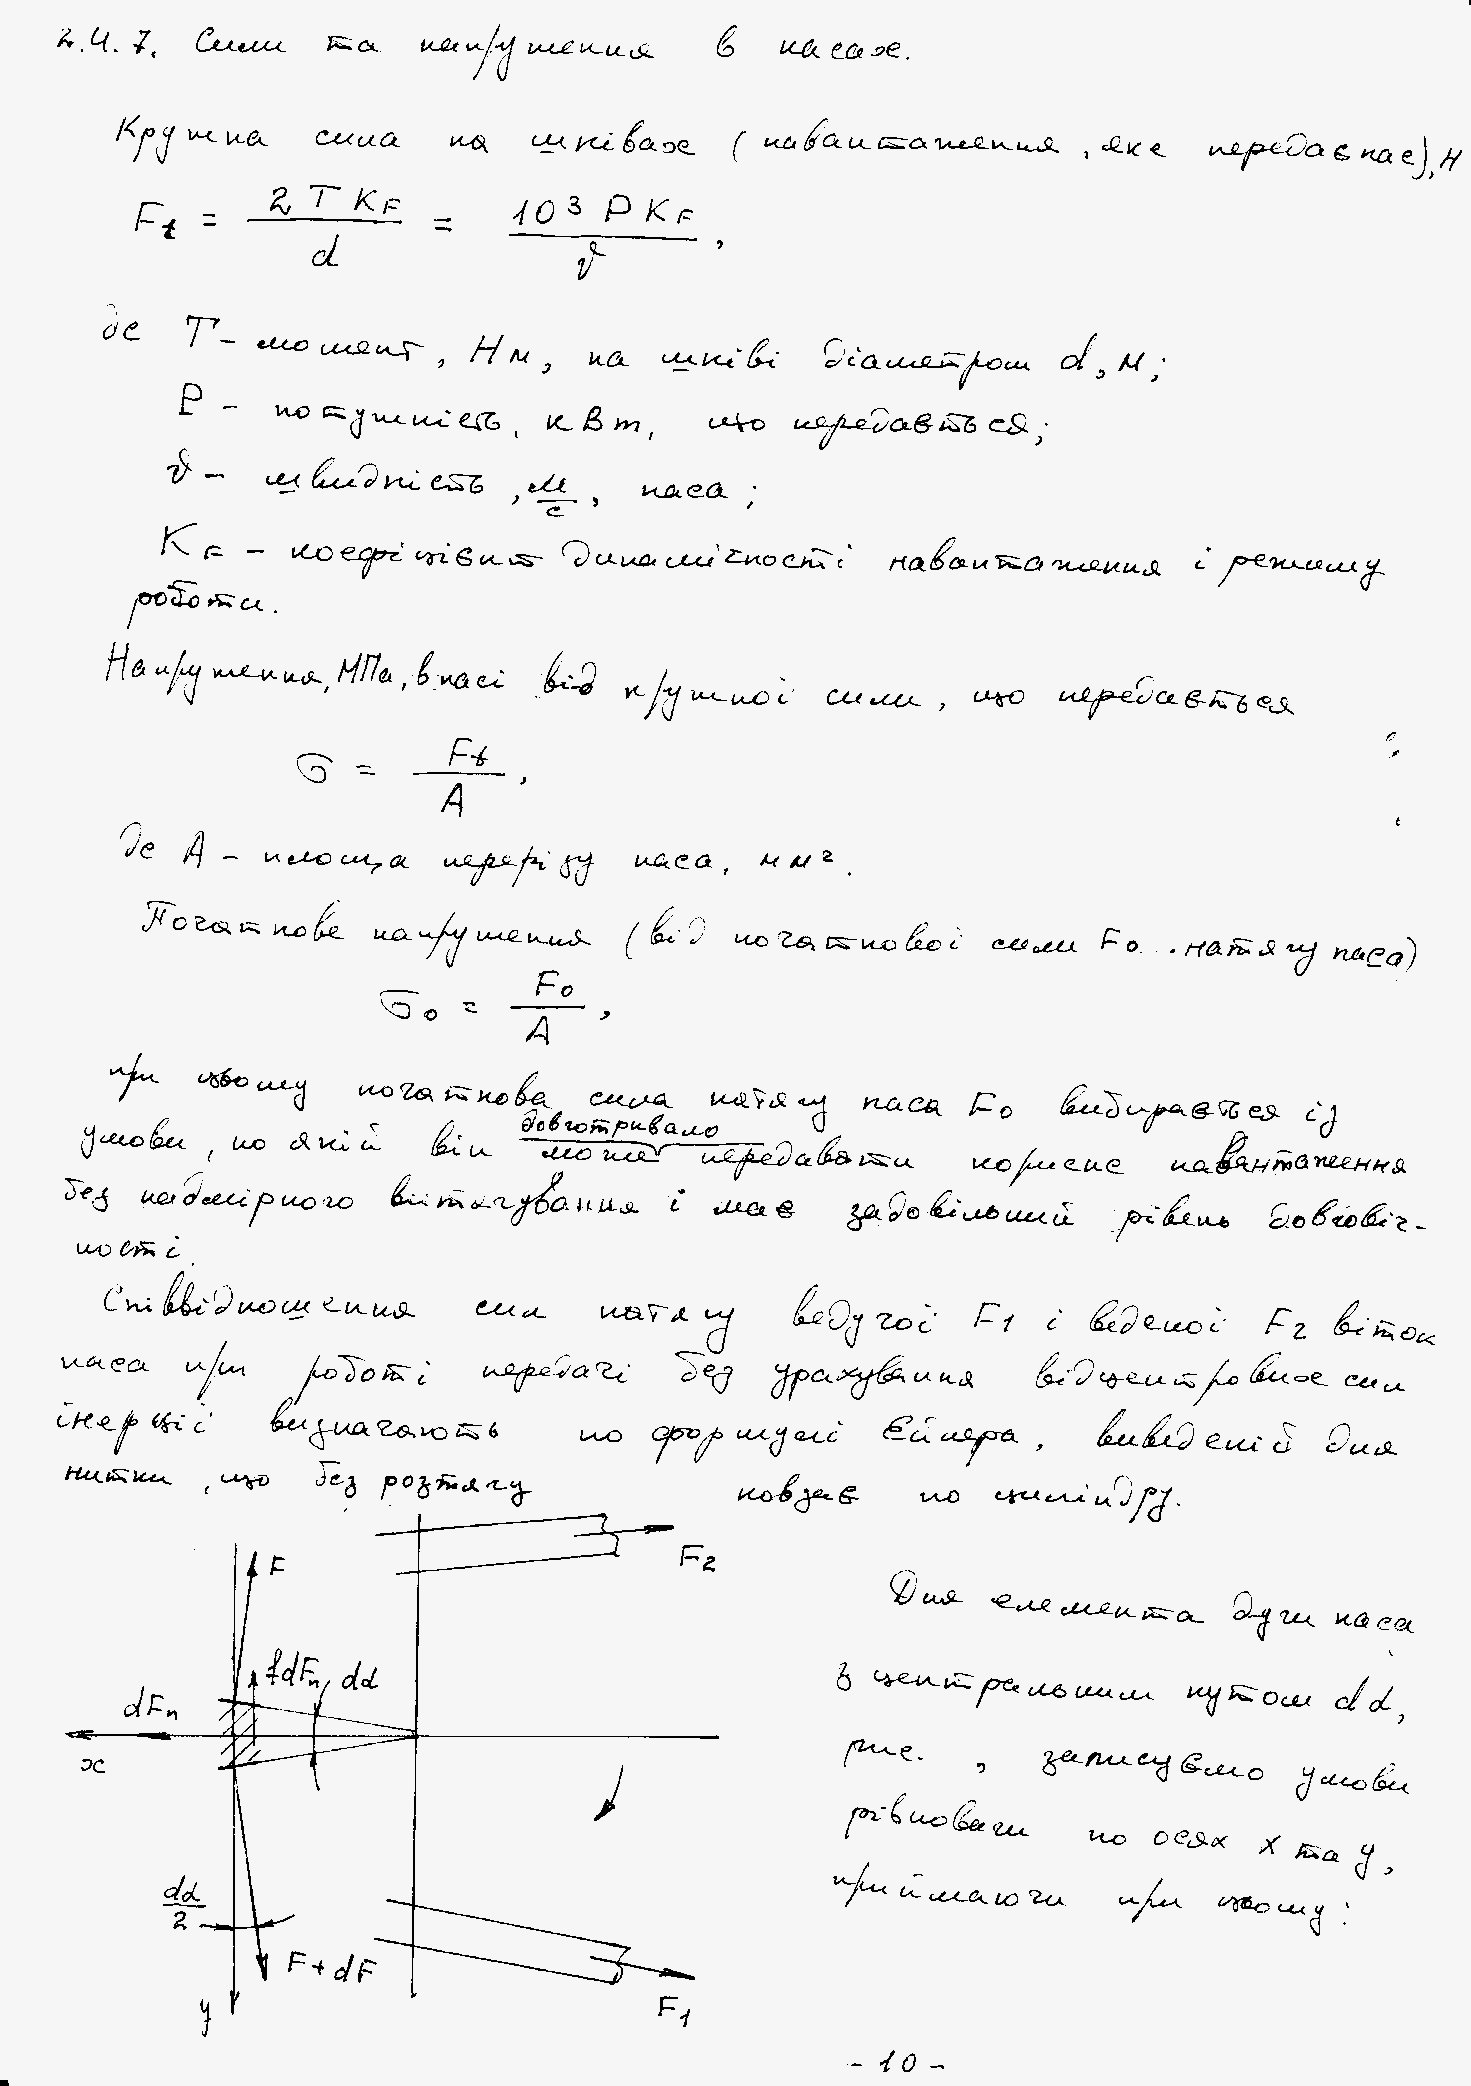 2.4.7. Сили та напруження в пасах.
Кружна сила на шківах (навантаження, яке передає пас), Н
Ft = 2 T KF / d = 10³ P KF / v,
де T – момент, Нм, на шківі діаметром d, м;
P – потужність, кВт, що передається;
v – швидкість, м/с, паса;
KF – коефіцієнт динамічності навантаження і режиму
роботи.
Напруження, МПа, в пасі від кружної сили, що передається
σ = Ft / A,
де A – площа перерізу паса, мм².
Початкове напруження (від початкової сили F0 натягу паса)
σ0 = F0 / A,
при цьому початкова сила натягу паса F0 вибирається із
довготривало
умови, по якій він може передавати корисне навантаження
без надмірного витягування і має задовільний рівень довговіч-
ності.
Співвідношення сил натягу ведучої F1 і веденої F2 віток
паса при роботі передачі без урахування відцентрових сил
інерції визначають по формулі Ейлера, виведеній для
нитки, що без розтягу ковзає по циліндру.
F2
F
fdFn
dα
dFn
x
dα/2
F+dF
y
F1
Для елемента дуги паса
з центральним кутом dα,
рис. , записуємо умови
рівноваги по осях x та y,
приймаючи при цьому:
- 10 -